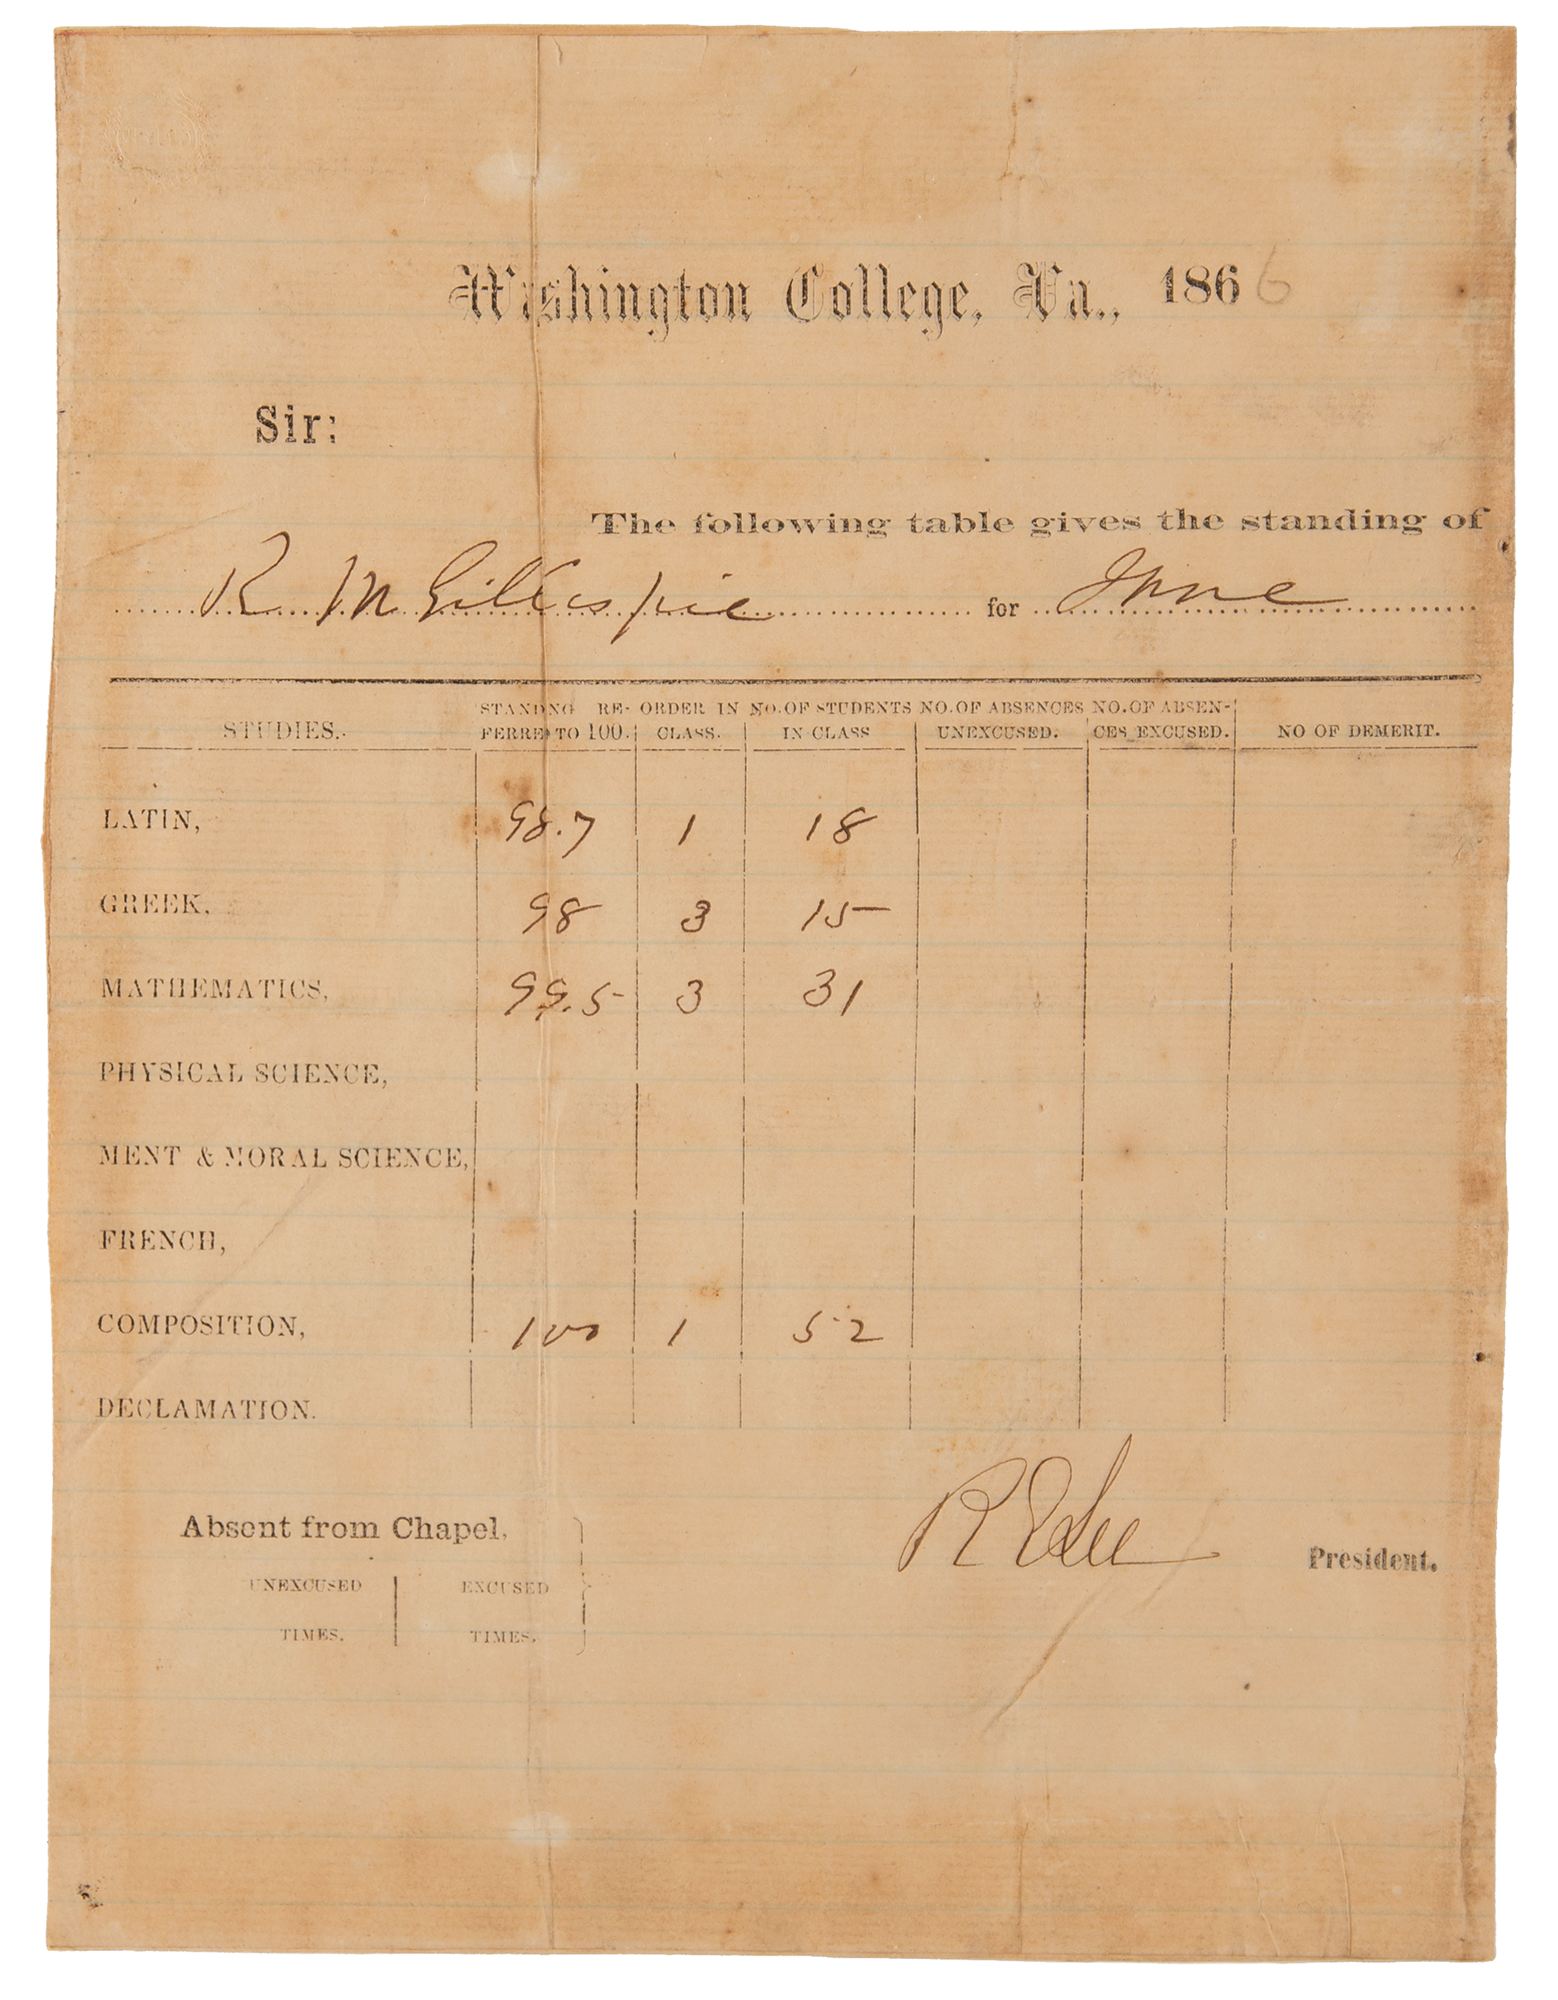 Washington College, Va., 1866
Sir:
The following table gives the standing of
R M Gillespie for June
STUDIES. STANDING RE-FERRED TO 100. ORDER IN CLASS. NO. OF STUDENTS IN CLASS NO. OF ABSENCES UNEXCUSED. NO. OF ABSEN-CES EXCUSED. NO OF DEMERIT.
LATIN, 98.7 1 18
GREEK, 98 3 15
MATHEMATICS, 99.5 3 31
PHYSICAL SCIENCE,
MENT & MORAL SCIENCE,
FRENCH,
COMPOSITION, 100 1 52
DECLAMATION.
R E Lee President.
Absent from Chapel,
UNEXCUSED EXCUSED
TIMES. TIMES.